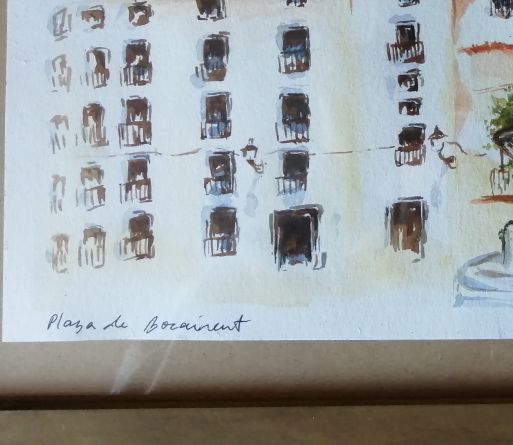 Plaza de Bocairent